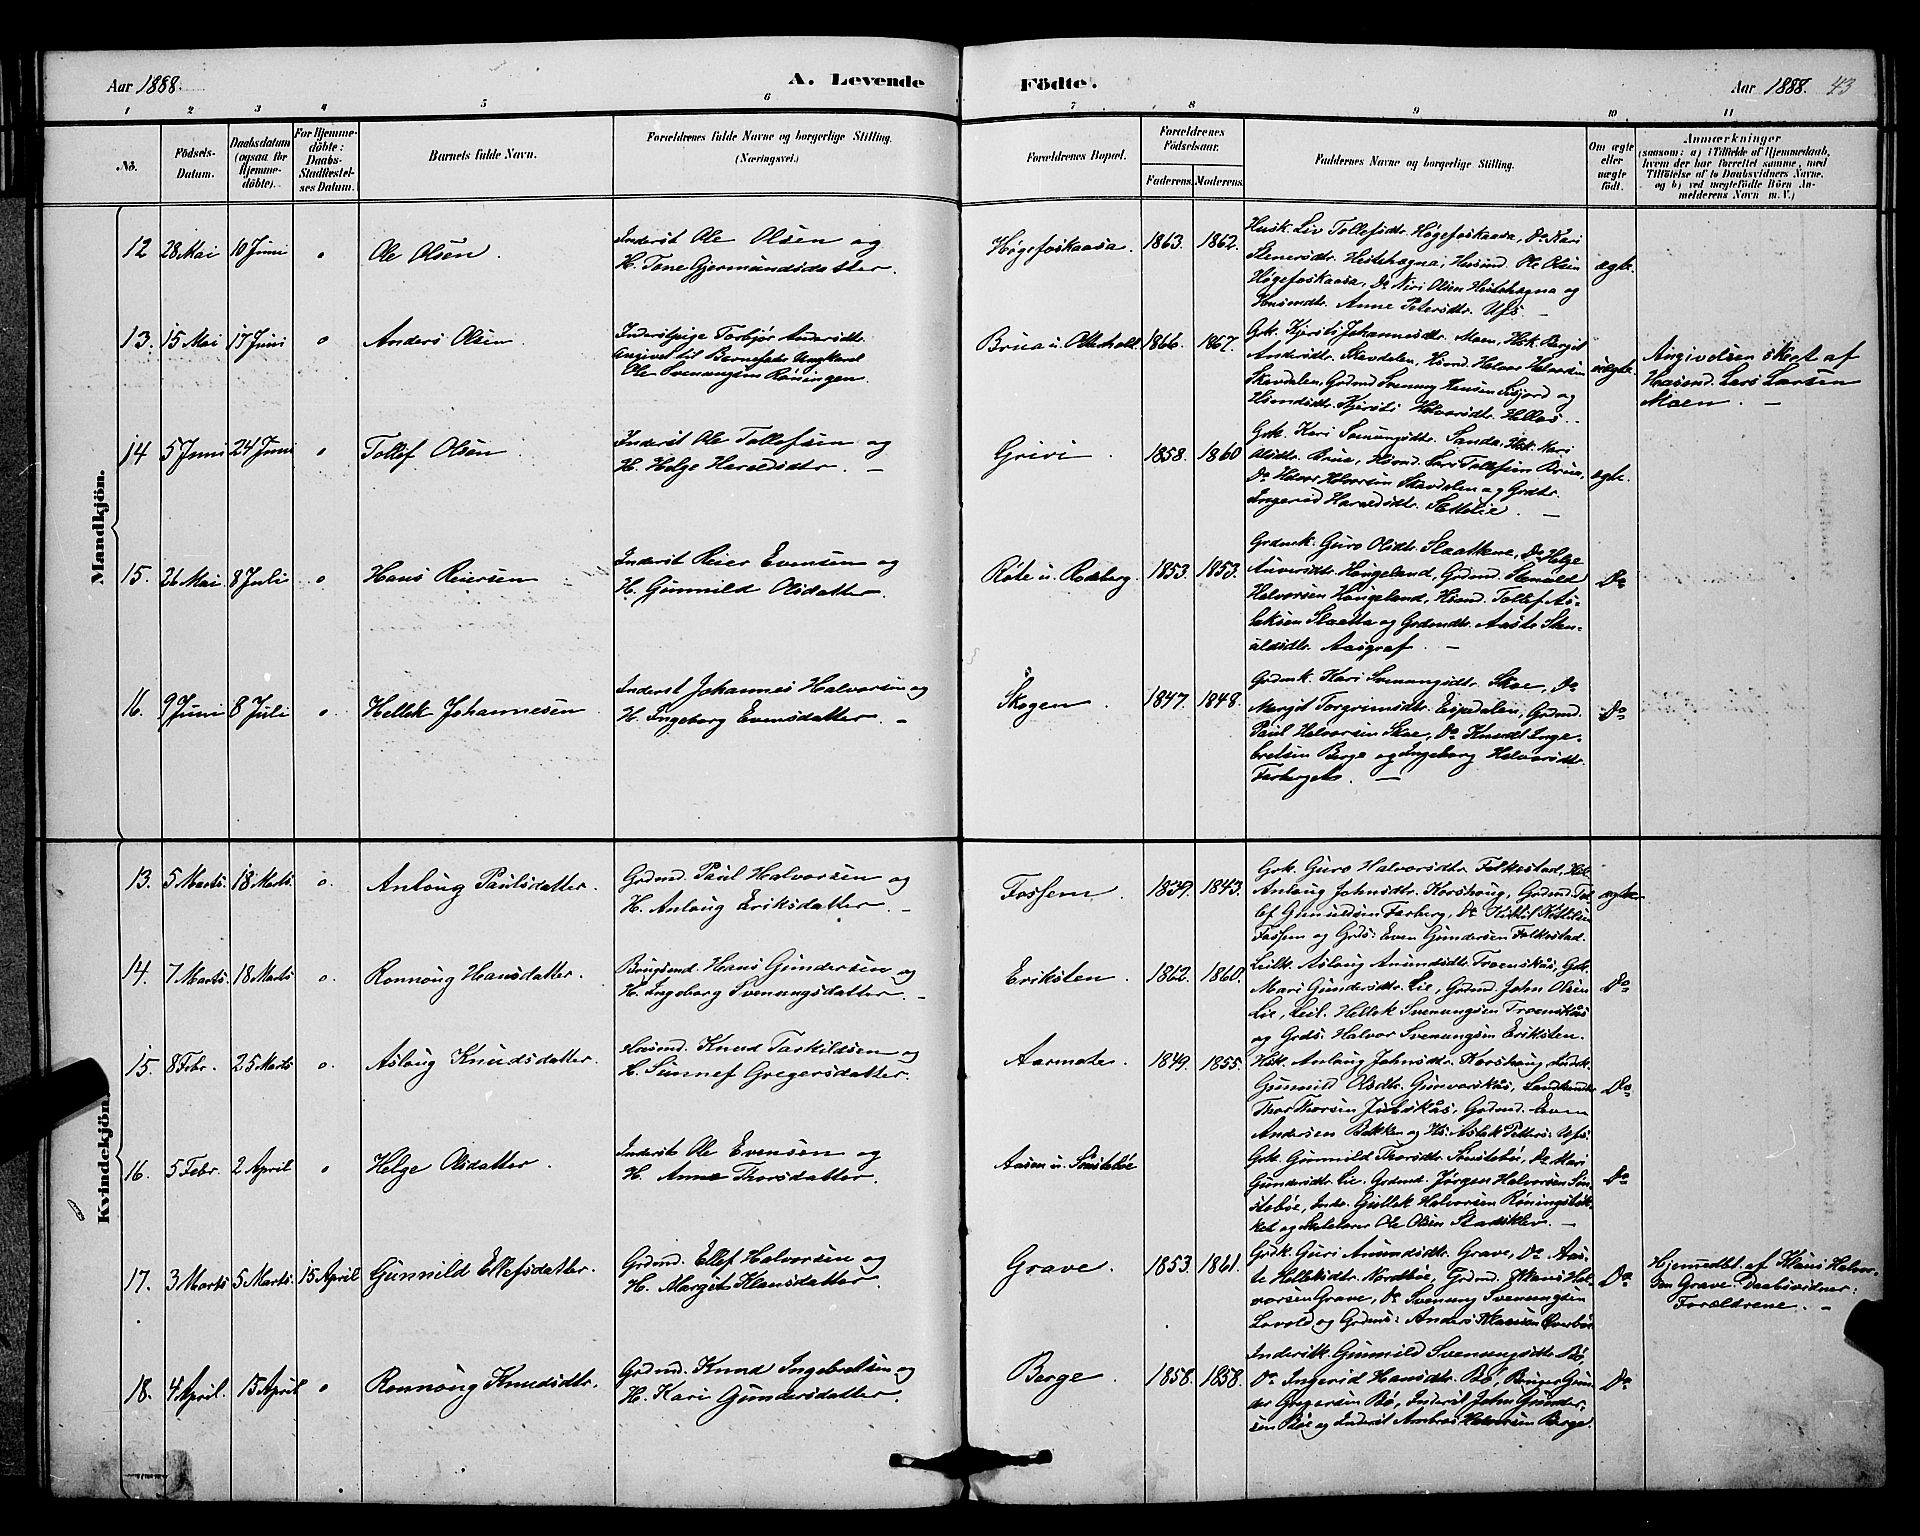 Aar 1888.
A. Levende
Födte.
Aar 1888. 43
1 2 3 4 5 6 7 8 9 10 11
No.
Födsels-
Datum.
Daabsdatum
(ogsaa för
Hjemme-
döbte).
For Hjemme-
döbte:
Daabs-
Stadfæstel-
ses Datum.
Barnets fulde Navn.
Forældrenes fulde Navne og borgerlige Stilling.
(Næringsvei.)
Forældrenes Bopæl.
Forældrenes
Födselsaar.
Faderens. Moderens.
Faddernes Navne og borgerlige Stilling.
Om ægte
eller
uægte
födt.
Anmærkninger
(saasom: a) i Tilfælde af Hjemmedaab,
hvem der har forrettet samme, med
Tilföielse af to Daabsvidners Navne.
og b) ved uægtefödte Börn An-
melderens Navn m. V.)
Mandkjön.
12 28 Mai 10 Juni o Ole Olsen.
Inderst Ole Olsen og
H. Tone Gjermundsdatter.
Høgefoskaasa. 1863. 1862.
Husk. Liv Tollefsdtr. Høgefoskaasa, Do Kari
Stenersdtr. Hestehagna, Husmd. Ole Olsen
Høgefoskaasa, Do Olsen Hestehagna og
Husmdtr. Anne Petersdtr. Ufs. –
ægte.
13. 15 Mai 17 Juni o Anders Olsen
Inderstpige Torbjør Andersdtr.
angivet til Barnefader Ungkarl
Ole Svenungsen Røningen.
Brua u. Otterholt. 1866. 1867.
Grk. Kjersti Johannesdtr. Moen, Hsk. Bergit
Andersdtr. Skavdalen, Hsmd. Halvor Halvorsen
Skavdalen, Grdmd Svenung Hansen og
Hsmdsdtr. Kjersti Halvorsdtr. Hellos.
uægte.
Angivelsen skeet af
Husmd. Lars Larsen
Moen. –
14 5 Juni 24 Juni o Tollef Olsen
Inderst Ole Tollefsen og
H. Helge Haraldsdtr. –
Grivi. 1858. 1860
Grk. Kari Svenungsdtr. Sanda, Hsk. Kari
Olsdtr. Brua, Hsmd. Lars Tollefsen Brua,
Do Halvor Halvorsen Skavdalen og Grdtr.
Ingerid Haraldsdtr. –
ægte.
15. 26 Mai 8 Juli o Hans Reiersen
Inderst Reier Evensen og
H. Gunnild Olsdatter.
Røte u. Rodeberg. 1853. 1853.
Grdmk. Guro Olsdtr. Slaattene, Do Helge
Haugeland, Grdmd. Stenuld
Halvorsen Haugeland, Hsmd. Tollef As-
laksen Slaatta og Grdmdtr. Aaste Sten-
uldsdtr. Aasgraf. –
Do
16. 9 Juni 8 Juli o. Hellek Johannesen
Inderst Johannes Halvorsen og
H. Ingeborg Evensdatter. –
Skogen. 1847. 1848.
Grdmk. Kari Svenungsdtr. Skoe, Do
Margit Torgrimsdtr. Espedalen, Grdmd.
Paul Halvorsen Skoe, Do Knudt Inge-
bretsen Berge og Ingeborg Halvorsdtr.
Farberget. –
Do
Kvindekjön.
13. 5 Marts. 18 Marts. o. Anlaug Paulsdatter.
Grdmd. Paul Halvorsen og
H. Anlaug Eriksdatter. –
Fossem. 1839. 1843.
Grk. Guro Halvorsdtr. Folkestad, Hsk.
Anlaug Johnsdtr. Korshaug, Grdmd. Tol-
lef Gunuldsen Farberg, Do Kittil Kittilsen
Fossem og Grds: Even Gundersen Folkestad.
ægte
14. 7 Marts. 18 Marts. o. Ronnoug Hansdatter.
Brugsmd. Hans Gundersen og
H. Ingeborg Svenungsdatter. –
Eriksten. 1862. 1860.
Leilk. Aslaug Amundsdtr. Troenskås, Grk.
Mari Gundersdtr. Lie, Grdmd. John Olsen
Lie, Leil. Hellek Svenungsen Troenskås
og Grds. Halvor Svenungsen Eriksten.
Do
15. 8 Febr. 25 Marts o. Aslaug Knudsdatter.
Husmd. Knud Tarkildsen og
H. Sunnef Gregersdatter.
Aarmote. 1849. 1855.
Hsk. Anlaug Johnsdtr. Korshaug,
Gunnild Olsdtr. Gunvarskås,
Thor Thorsen Jubskås, Grdmd. Even
Andersen Bakken og Hs. Aslak Petters: Ufs.
Do
16. 5 Febr. 2 April o Helge Olsdatter.
Inderst Ole Evensen og
H. Anne Thorsdatter.
Aasen u. Sønstebøe
Grk. Gunnild Thorsdtr. Sønstebøe, Do Mari
Gundersdtr. Lie, Grdmd. Jørgen Halvorsen Søn-
stebøe, Inds. Gullek Halvorsen Røningsbak-
ket og Ole Olsen –
Do
17. 3 Marts 5 Marts. 15 April Gunnild Ellefsdatter.
Grdmd. Ellef Halvorsen og
H. Margit Klausdatter.
Grave. 1853. 1861.
Grdk. Guri Amundsdtr. Grave, Do Aas-
te Helleksdtr. Nordbøe, Grdmd. Klaus Hal-
vorsen Grave, Do Svenung Svenungsen
Lovold og Grdms: Anders Klausen Overbøe
Do
Hjemmedbt. af Klaus Halvor-
sen Grave. Daabsvidner:
Forældrene. –
18. 4 April. 15 April o Ronnoug Knudsdtr.
Grdmd. Knud Ingebretsen og
H. Kari Gundersdatter.
Berge. 1858. 1858.
Inderstk. Gunnild Svenungsdtr. Bø,
Do Ingerid Hansdtr. Bø, Bruger Gun-
der Gregersen Bø, Inderst John Gunder-
sen Bøe og Inderst Ambros Halvorsen Berge.
Do